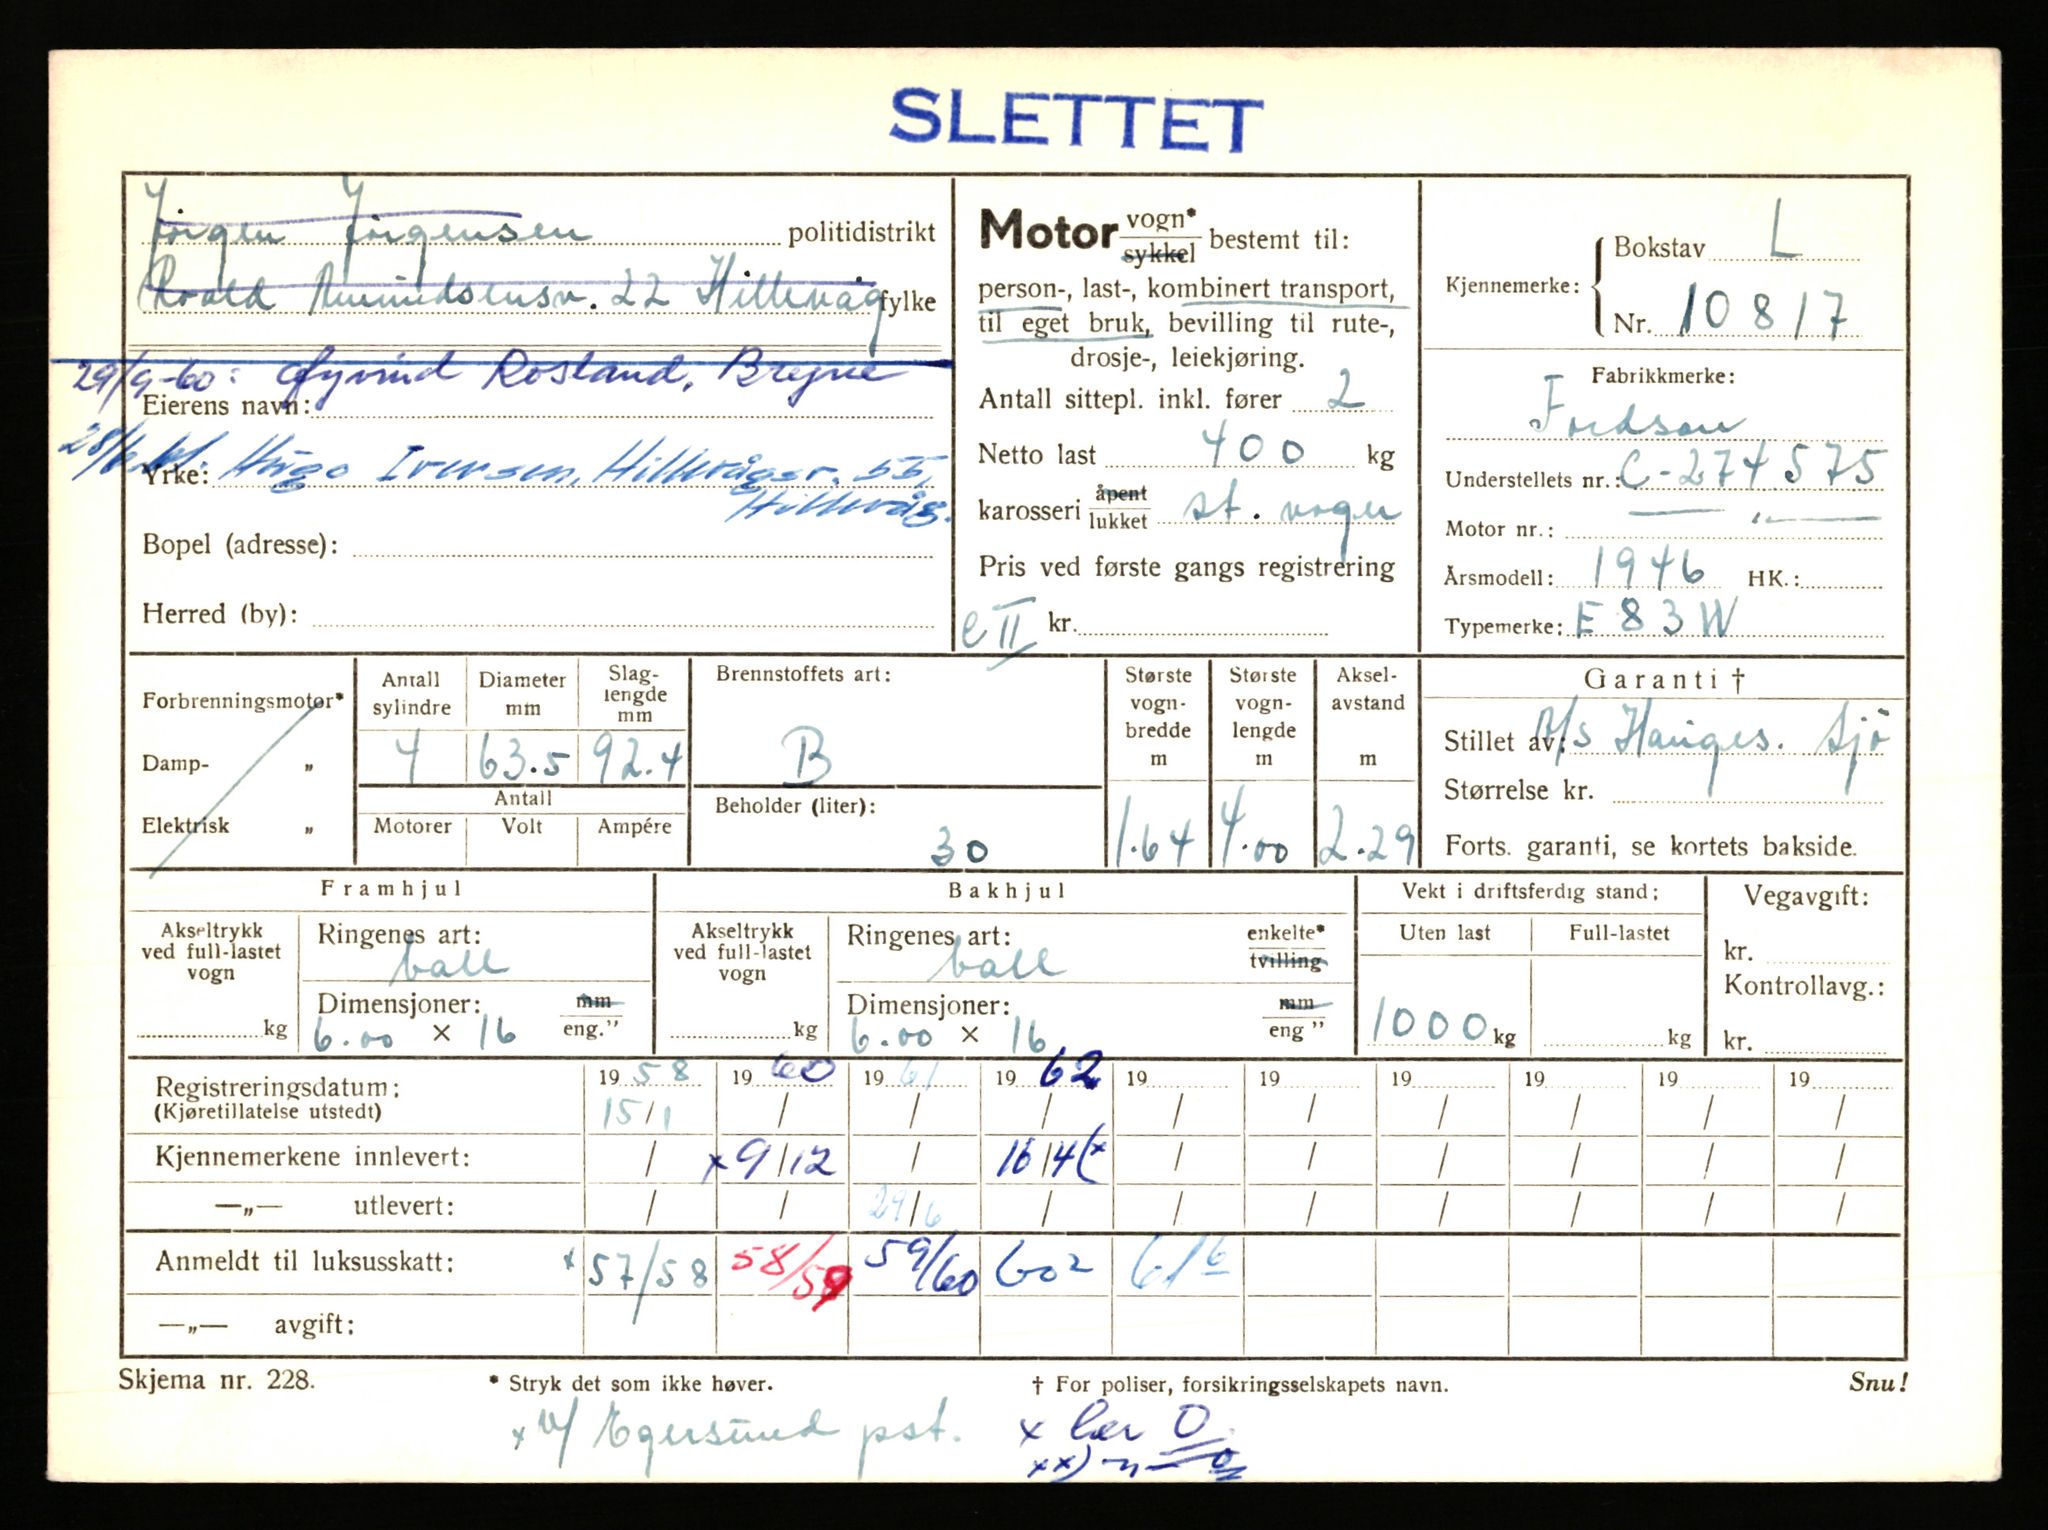 SLETTET
Jørgen Jørgensen politidistrikt
Roald Amundsensv. 22 Hillevåg fylke
29/9-60: Øyvind Rosland, Bryne
Eierens navn:
28/6.61. Hugo Iversen, Hillevågsv. 55,
Yrke:
Hillevåg.
Bopel (adresse):
Herred (by):
Motor vogn* sykkel bestemt til:
person-, last-, kombinert transport,
til eget bruk, bevilling til rute-,
drosje-, leiekjøring.
Antall sittepl. inkl. fører 2
Netto last 400 kg
karosseri åpent lukket st. vogn
Pris ved første gangs registrering
e II kr.
Kjennemerke: Bokstav L
Nr. 10817
Fabrikkmerke:
Fordson
Understellets nr.: C-274575
Motor nr.: — " —
Årsmodell: 1946 HK.:
Typemerke: E83W
Forbrenningsmotor*
Damp- „
Elektrisk „
Antall sylindre 4
Diameter mm 63.5
Slag-lengde mm 92.4
Antall
Motorer Volt Ampére
Brennstoffets art:
B
Beholder (liter):
30
Største vogn-bredde m 1.64
Største vogn-lengde m 4.00
Aksel-avstand m 2.29
Garanti †
Stillet av: A/S Hauges. Sjö
Størrelse kr.
Forts. garanti, se kortets bakside.
Framhjul
Akseltrykk ved full-lastet vogn
kg
Ringenes art:
ball
Dimensjoner: mm
6.00 × 16 eng.”
Bakhjul
Akseltrykk ved full-lastet vogn
kg
Ringenes art: enkelte*
ball tvilling
Dimensjoner: mm
6.00 × 16 eng ”
Vekt i driftsferdig stand;
Uten last Full-lastet
1000 kg kg
Vegavgift:
kr.
Kontrollavg.:
kr.
Registreringsdatum; 1958 1960 1961 1962 19 19 19 19 19 19
(Kjøretillatelse utstedt) 15/1 / / / / / / / / /
Kjennemerkene innlevert: / x 9/12 / 16/4 (x / / / / / /
—„— utlevert: / / 29/6 / / / / / / /
Anmeldt til luksusskatt: x 57/58 58/59 59/60 60² 61⁶
—„— avgift:
Skjema nr. 228. * Stryk det som ikke høver. † For poliser, forsikringsselskapets navn. Snu!
x v/ Egersund pst. x lær O.
xx) — " — O